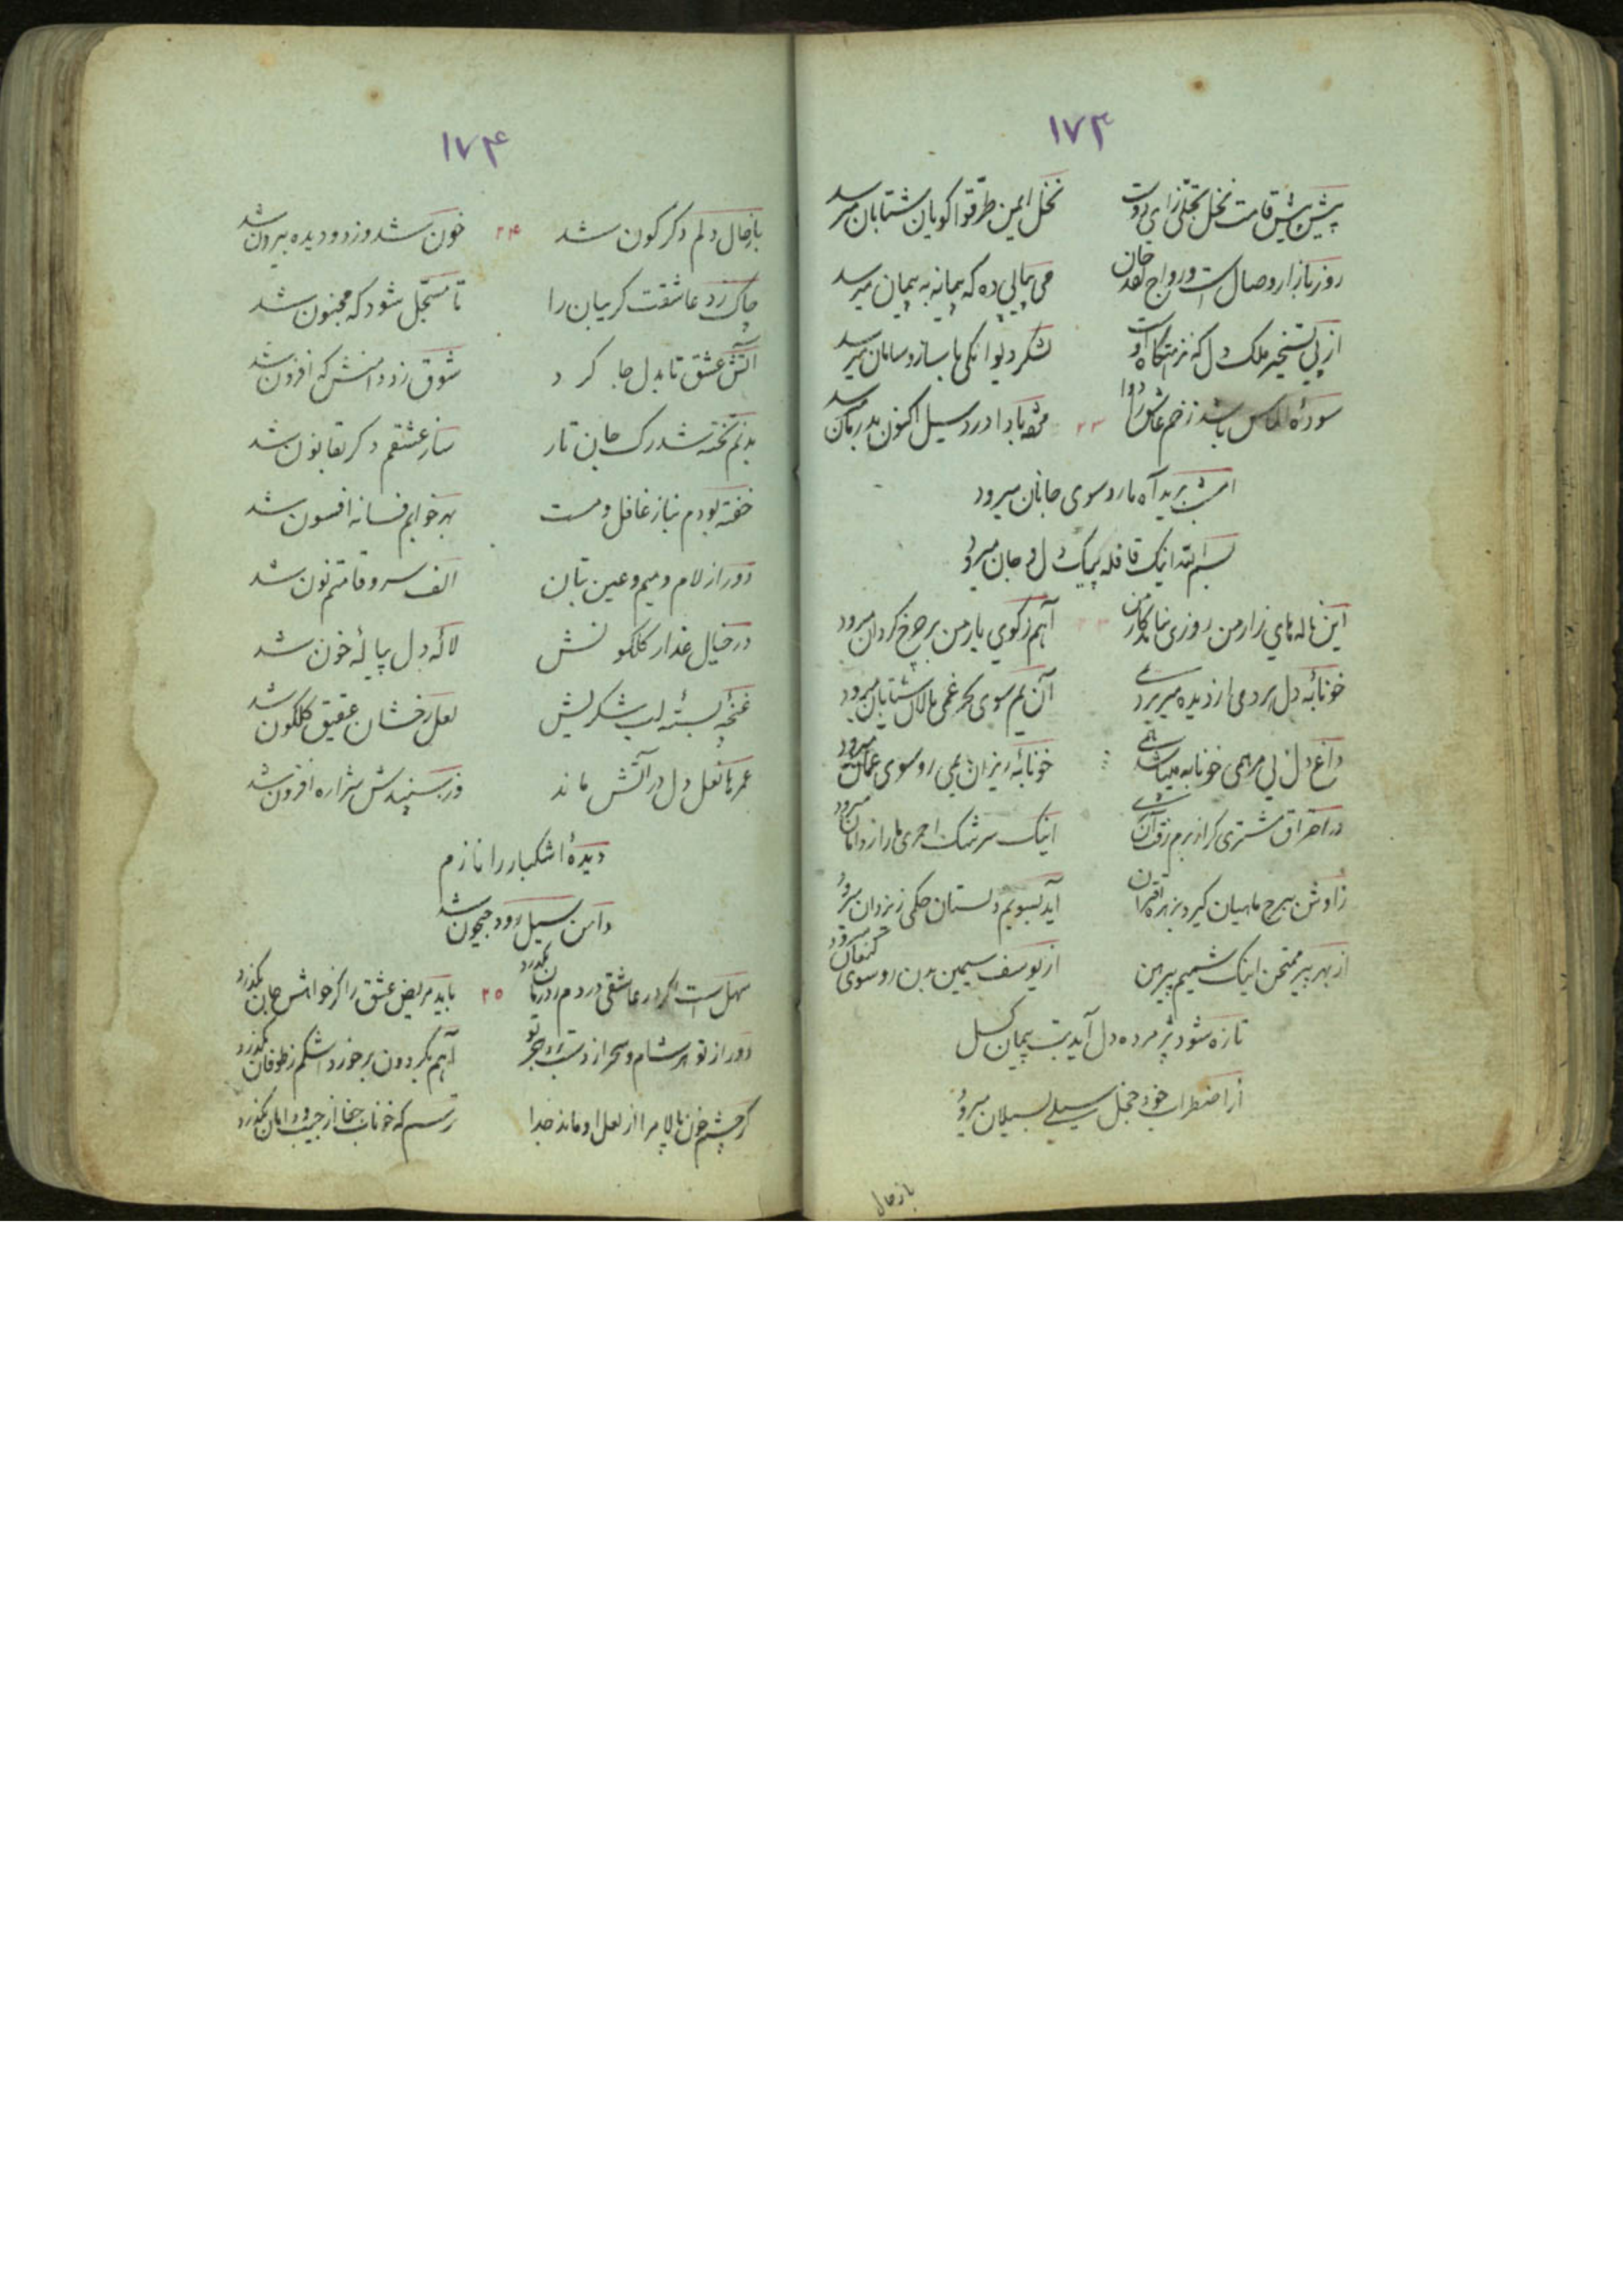 ۱۷۳
پیش پیش قامت نخل تجلی زای دوست نخل ایمن طرقوا گویان شتابان میرسد
روز بازار وصال است و رواج نقد جان می پیاپی ده که پیمانه به پیمان میرسد
از پی تسخیر ملک دل که نزهتگاه اوست لشکر دیوانگی با ساز و سامان میرسد
سودهٔ الماس باشد زخم عاشق را دوا ۲۳ مژده بادا درد سیل اکنون بدرمان میرسد
امشب برید آه ما رو سوی جانان میرود
بسم الله اینک قافله پیک دل و جان میرود
این ناله‌های زار من روزی نیاید کار من ۲۳ آهم ز کوی یار من بر چرخ گردان میرود
خونابهٔ دل بر دمی از دیده میریزد آن یم سوی بحر غمی شتابان میرود
داغ دل بی مرهمی خونابه خونابهٔ ریزان یمی رو سوی عمان میرود
در احتراق مشتری کز بزم اینک سرشک احمری ما را ز دامان میرود
زاوش ببرج ماهیان گیرد بزهره اقتران آید بسویم دلستان حکمی ز یزدان میرود
از بهر پیر ممتحن اینک شمیم پیرهن از یوسف سیمین بدن رو سوی کنعان میرود
تازه شود پژمرده دل آید بت پیمان گسل
از اضطراب خود خجل سیلی بسیلان میرود
باز حال
۱۷۴
باز حال دلم دگرگون شد ۲۴ خون شد و زدو دیده بیرون شد
چاک زد عاشقت گریبان را تا مسجل شود که مجنون شد
آتش عشق تا بدل جا کرد شوق زد دامنش که افزون شد
بدنم تخته شد رگ جان تار ساز عشقم دگر بقانون شد
خفته بودم نیاز غافل و مست بهر خوابم فسانه افسون شد
دور از لام و میم و عین بتان الف سرو قامتم نون شد
در خیال عذار گلگونش لاله دل پیالهٔ خون شد
غنچهٔ بستهٔ لب شکریش لعل رخشان عقیق گلگون شد
عمرها نعل دل در آتش ماند وز سپندش شراره افزون شد
دیدهٔ اشکبار را نازم
دامن سیل رود جیحون شد
سهل است اگر در عاشقی دردم ز درمان بگذرد ۲۵ باید مریض عشق را کز خواهش جان بگذرد
دور از تو هر شام و سحر از دست هجر تو آهم بگردون بر خورد اشکم ز طوفان بگذرد
گر چشم خون پالا مرا از لعل او ماند جدا ترسم که خوناب جفا از جیب و دامان بگذرد